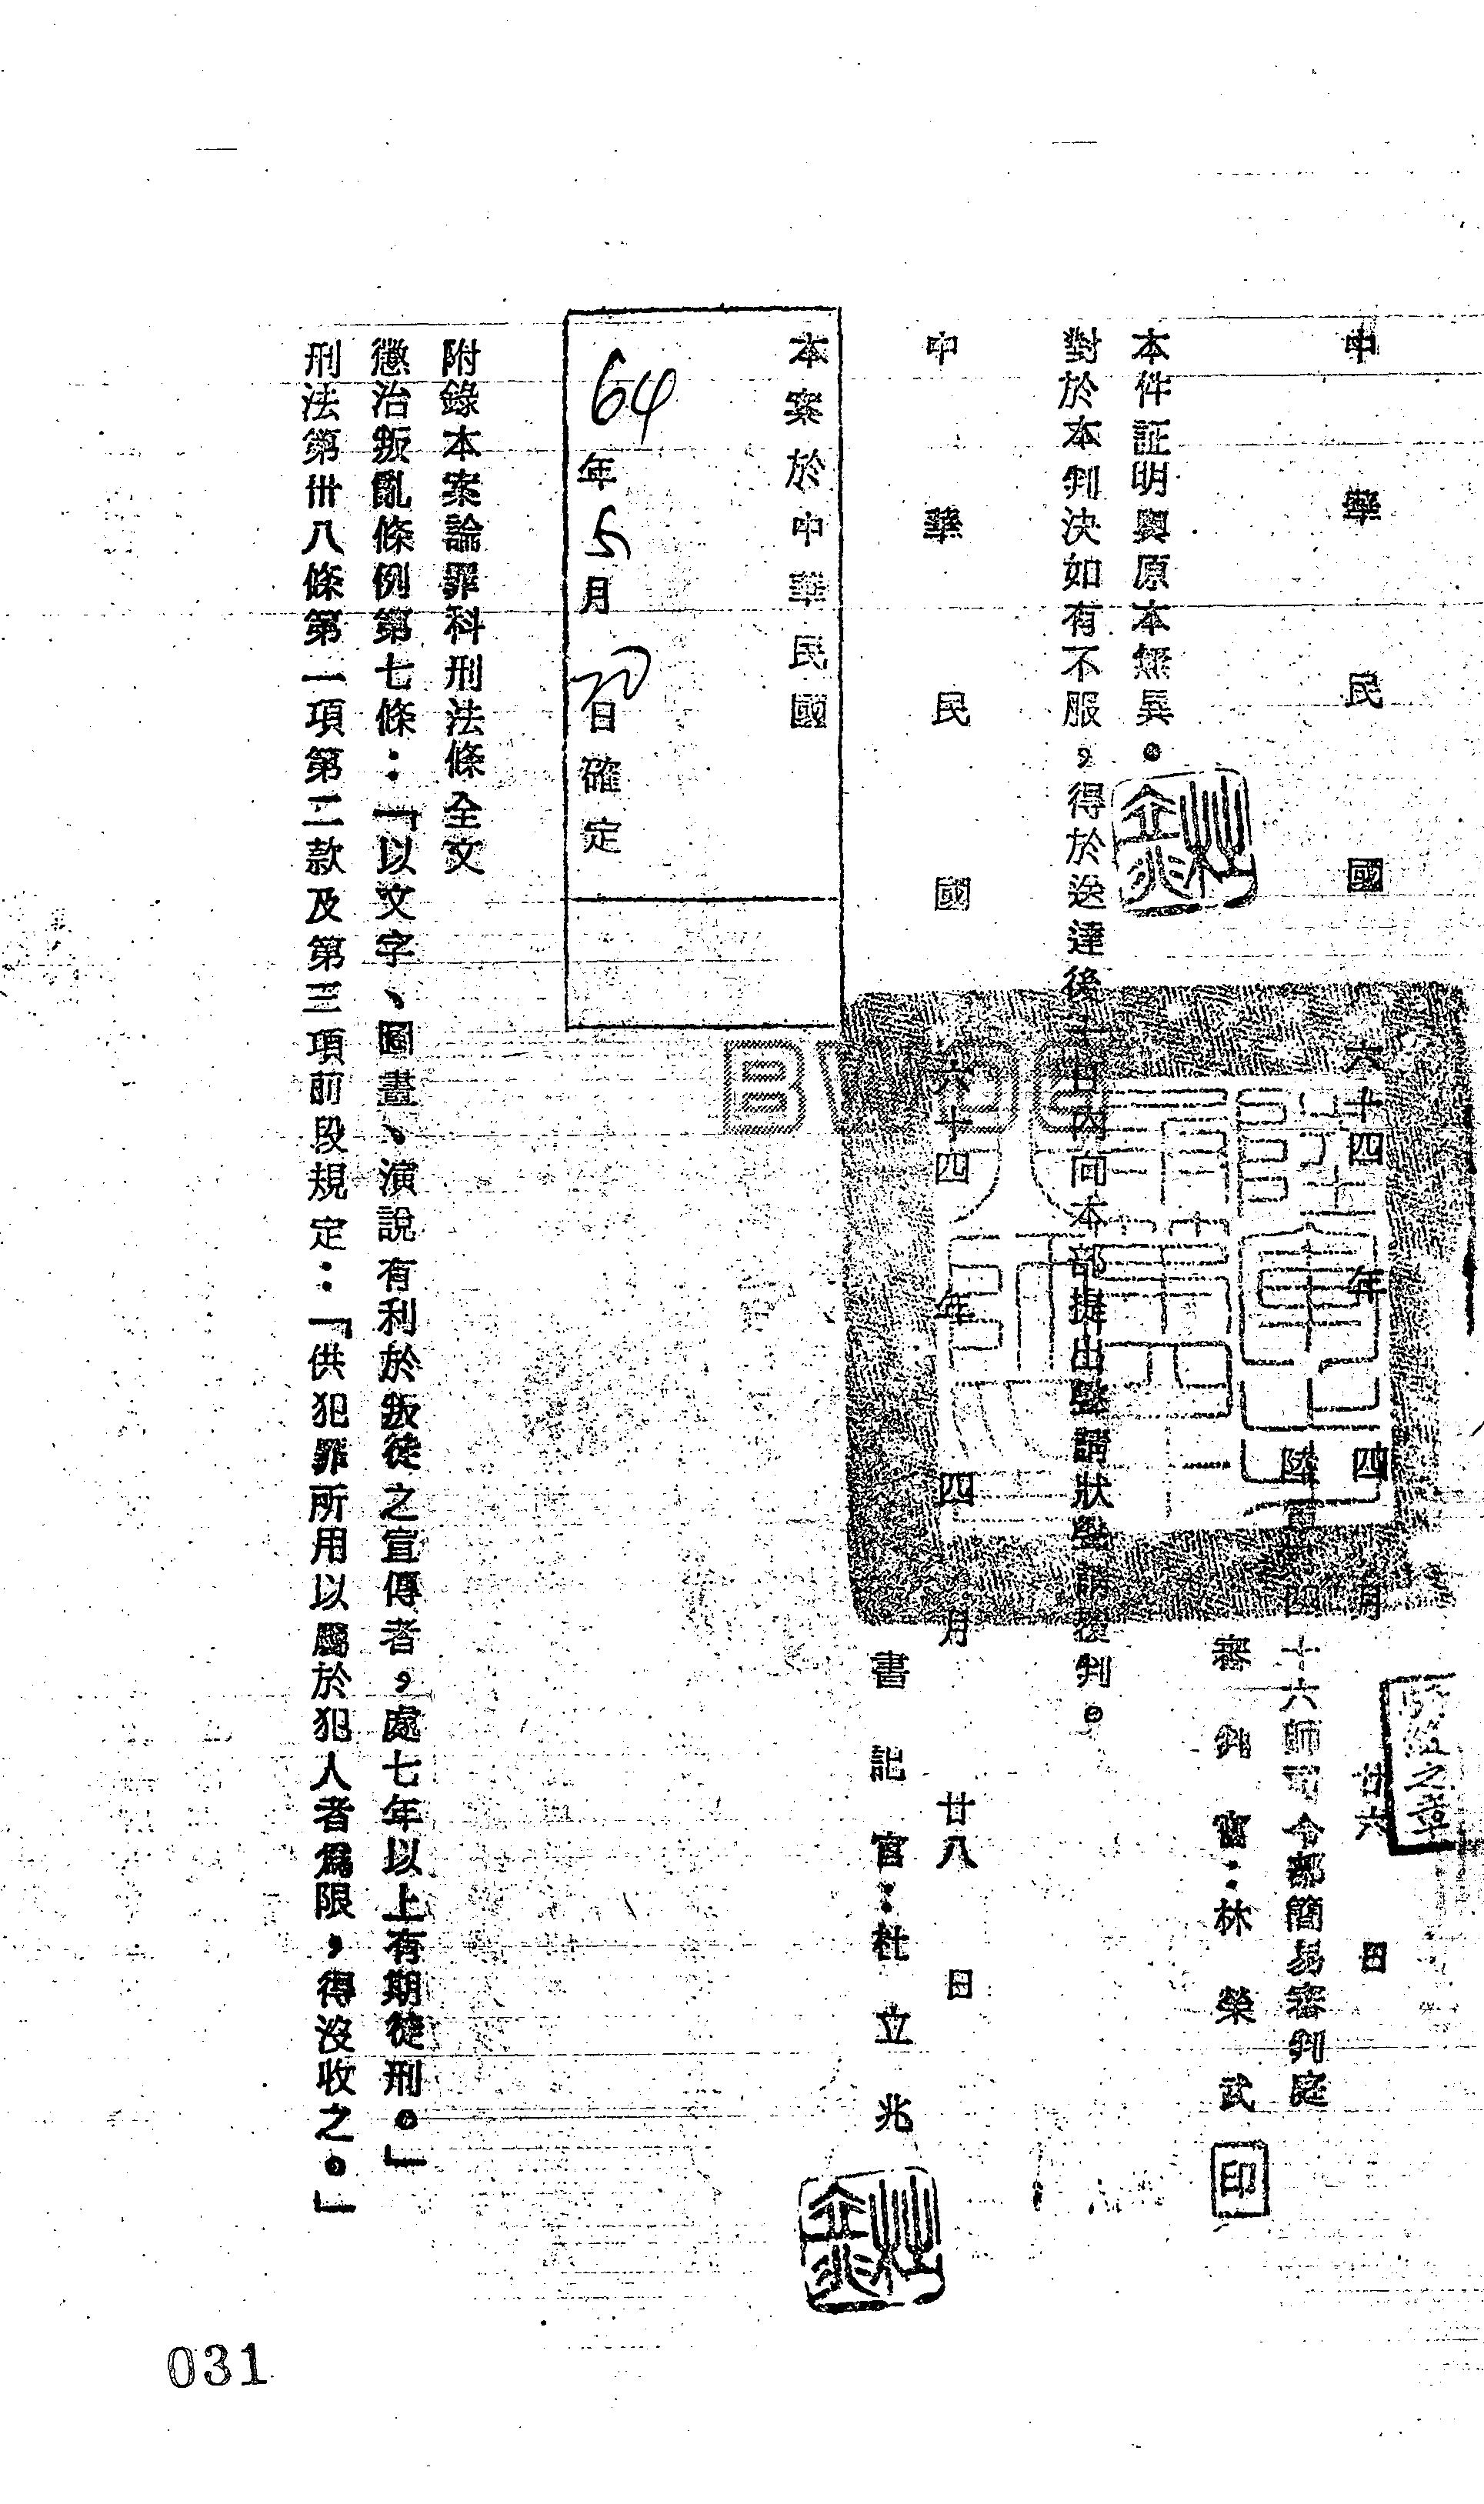 中華民國六十四年四月廿六日
陸軍四十六師司令部簡易審判庭
審判官：林榮武印
本件証明與原本無異。
對於本判決如有不服，得於送達後十日內向本部提出聲請狀聲請覆判。
中華民國六十四年四月廿八日
書記官：杜立兆
本案於中華民國
64年5月日確定
附錄本案論罪科刑法條全文
懲治叛亂條例第七條：「以文字、圖畫、演說有利於叛徒之宣傳者，處七年以上有期徒刑。」
刑法第卅八條第一項第二款及第三項前段規定：「供犯罪所用以屬於犯人者爲限，得沒收之。」
031